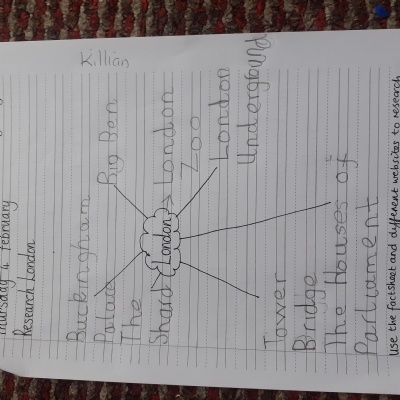 Thursday 4 February
Research London
Killian
Buckingham
Palace
Big Ben
The
Shard
London
London
Zoo
London
Underground
Tower
Bridge
The Houses of
Parliament
Use the factsheet and different websites to research